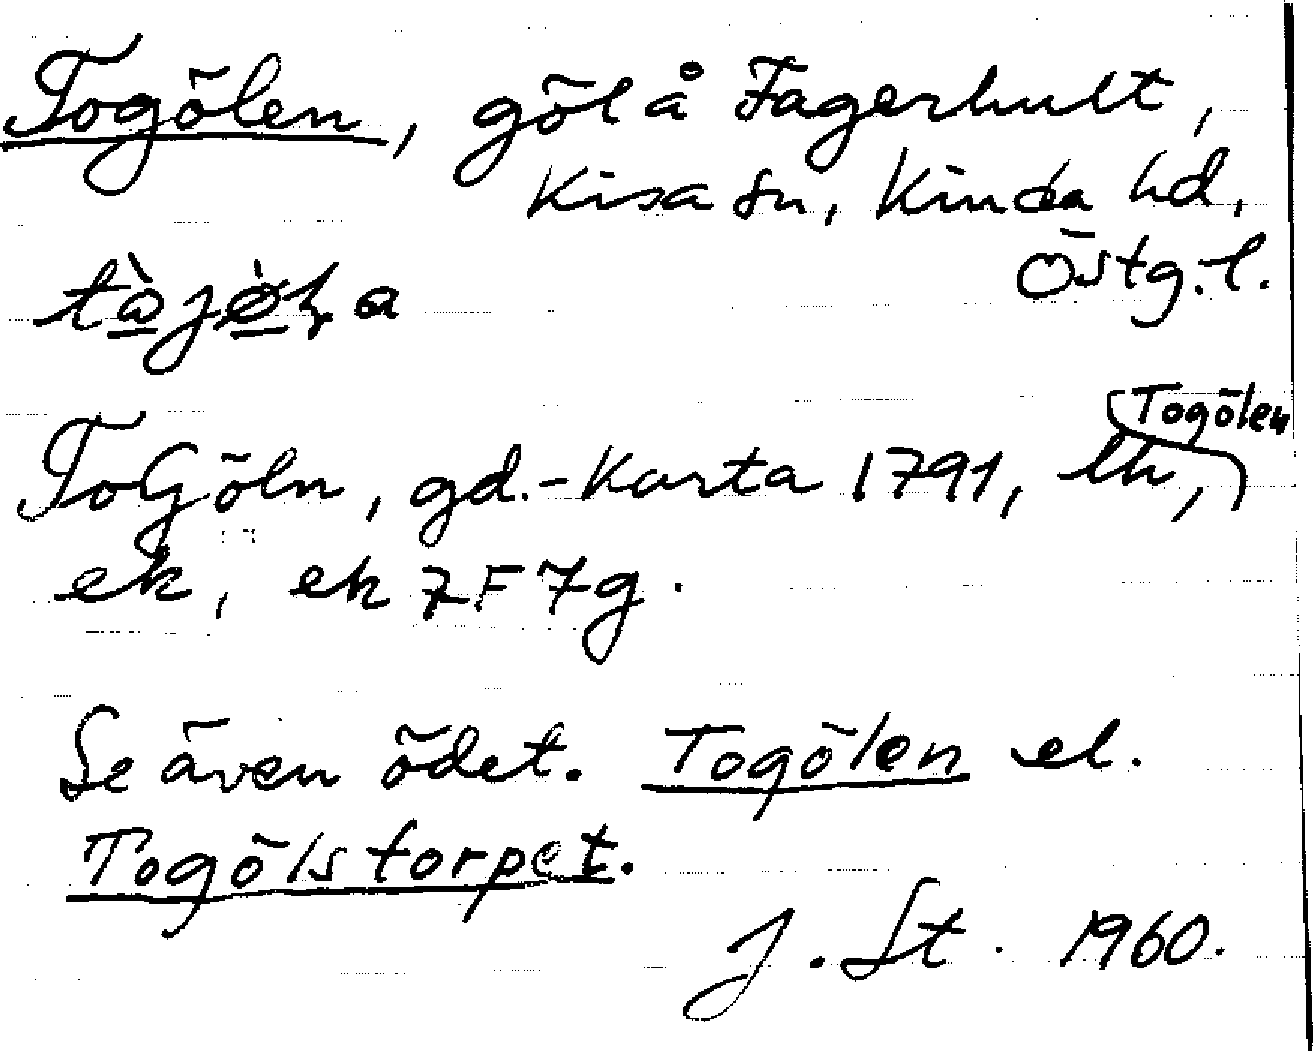 Togölen, göl å Fagerhult,
Kisa sn, Kinda hd,
Östg. l.
Togölen
ToGöln, gd.-Karta 1791, lk,
ek, ek 7F7g.
Se även ödet. Togölen el.
Togölstorpet.
J. St. 1960.